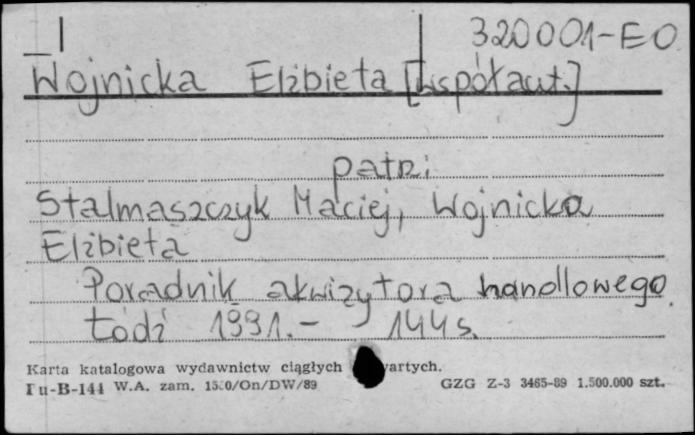 320001-EO
Wojnicka Elżbieta [współaut.]
patrz:
Stalmaszczyk Maciej, Wojnicka
Elżbieta
Poradnik akwizytora handlowego.
Łódź 1991.- 144 s.
Karta katalogowa wydawnictw ciągłych
Pu-B-144 W.A. zam. /On/DW/89 GZG Z-3 3465-89 1.500.000 szt.